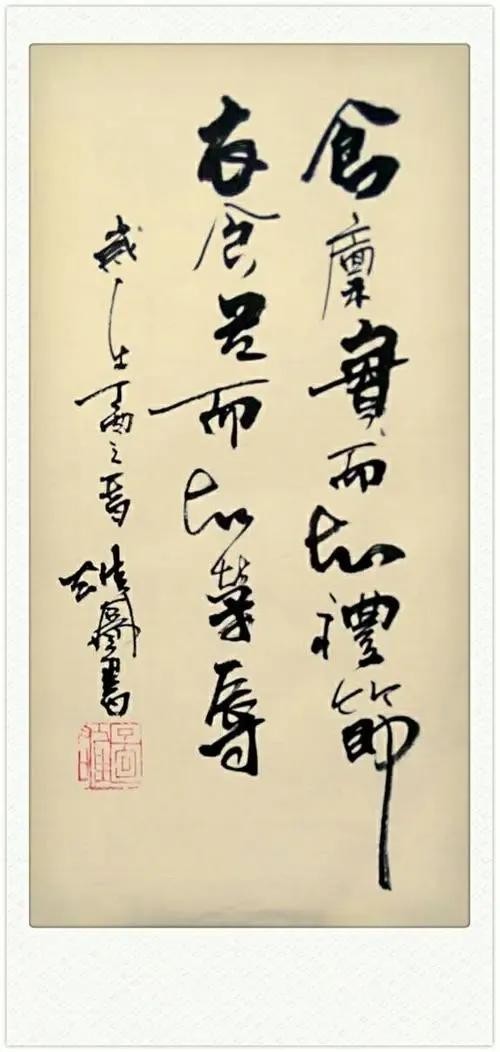 倉廩實而知禮節
衣食足而知榮辱
歲在丁酉之春
書